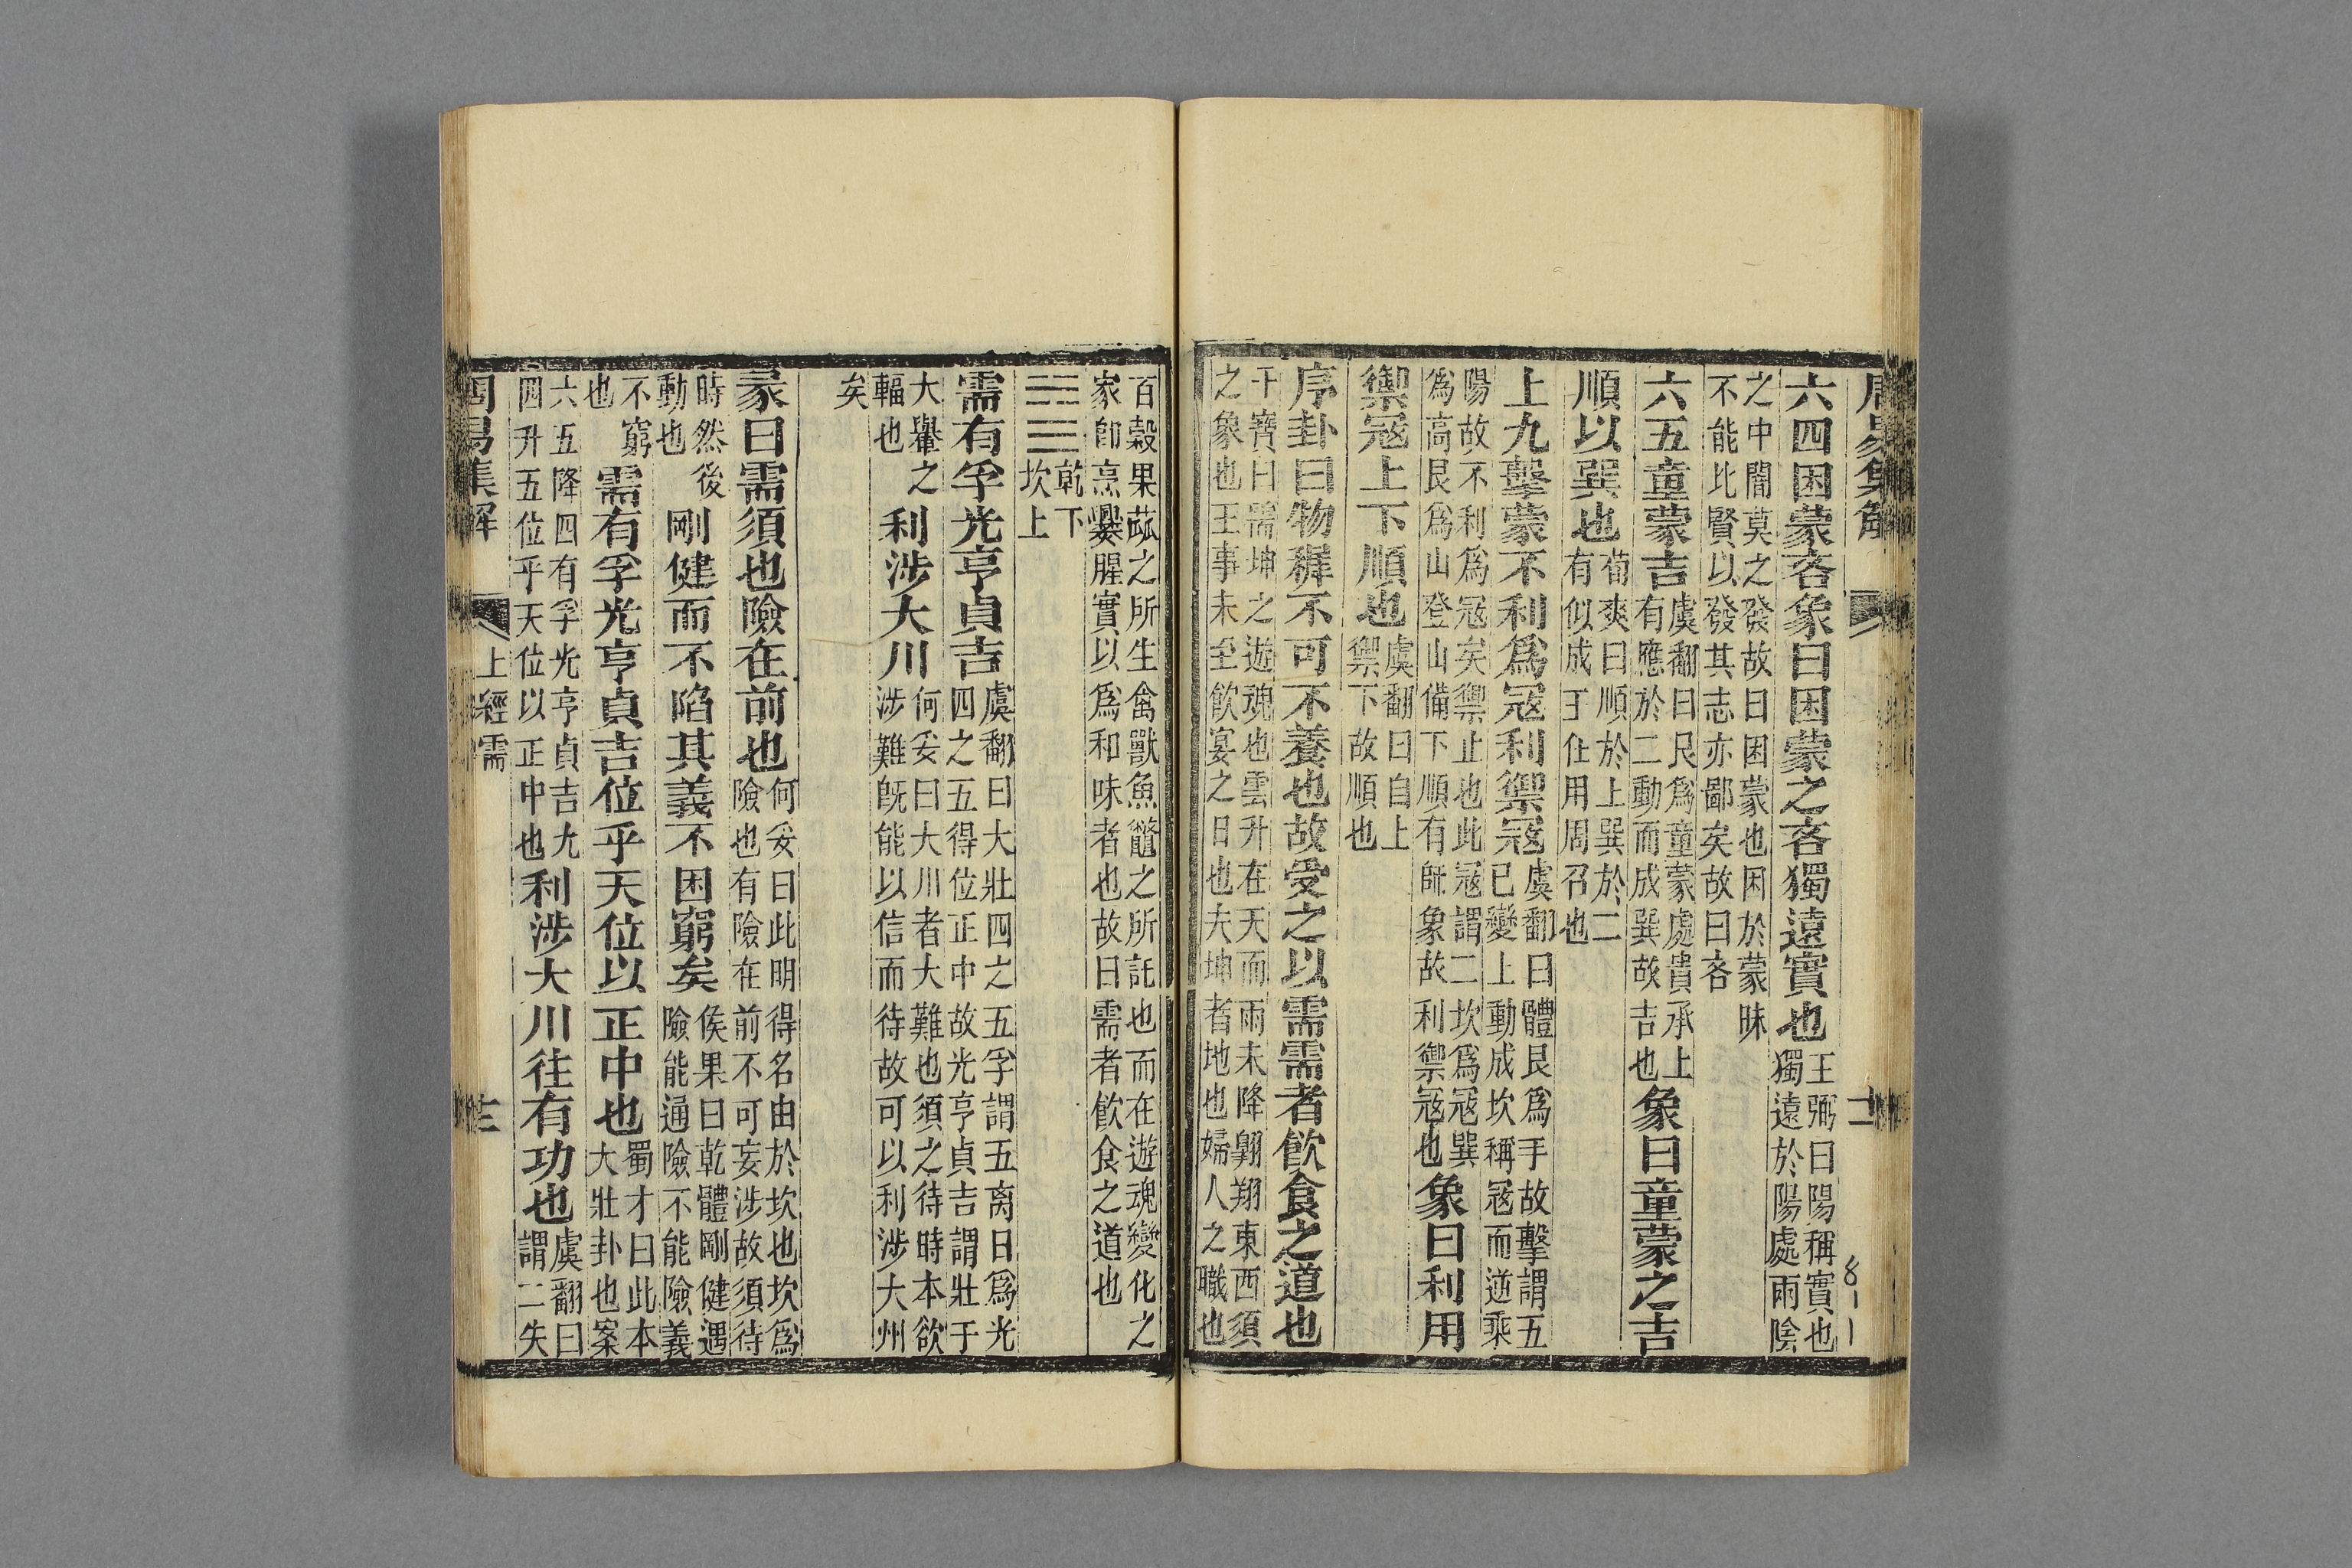 周易集解
十二
8－1
六四困蒙吝象曰困蒙之吝獨遠實也王弼曰陽稱實也
獨遠於陽處兩陰
之中闇莫之發故曰困蒙也困於蒙昧
不能比賢以發其志亦鄙矣故曰吝
六五童蒙吉虞翻曰艮爲童蒙處貴承上
有應於二動而成巽故吉也象曰童蒙之吉
順以巽也荀爽曰順於上巽於二
有似成王任用周召也
上九擊蒙不利爲冦利禦冦虞翻曰體艮爲手故擊謂五
已變上動成坎稱冦而逆乘
陽故不利爲冦矣禦止也此冦謂二坎爲冦巽
爲高艮爲山登山備下順有師象故利禦冦也象曰利用
禦冦上下順也虞翻曰自上
禦下故順也
序卦曰物穉不可不養也故受之以需需者飲食之道也
干寶曰需坤之遊魂也雲升在天而雨未降翱翔東西須
之象也王事未至飲宴之日也夫坤者地也婦人之職也
百穀果蓏之所生禽獸魚鼈之所託也而在遊魂變化之
家卽烹爨腥實以爲和味者也故曰需者飲食之道也
乾下
坎上
需有孚光亨貞吉虞翻曰大壯四之五孚謂五离日爲光
四之五得位正中故光亨貞吉謂壯于
大轝之
輻也利涉大川何妥曰大川者大難也須之待時本欲
涉難旣能以信而待故可以利涉大州
矣
彖曰需須也險在前也何妥曰此明得名由於坎也坎爲
險也有險在前不可妄涉故須待
時然後
動也剛健而不陷其義不困窮矣侯果曰乾體剛健遇
險能通險不能險義
不窮
也需有孚光亨貞吉位乎天位以正中也蜀才曰此本
大壯卦也案
六五降四有孚光亨貞吉九
四升五位乎天位以正中也利涉大川往有功也虞翻曰
謂二失
周易集解
上經 需
十三